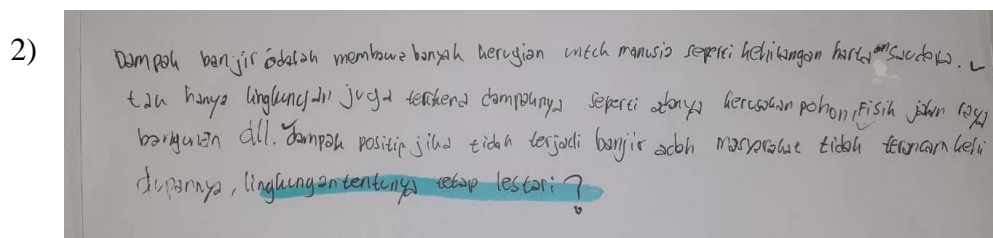 2)
Dampak banjir adalah membawa banyak kerugian untek manusia seperti kehilangan harta saudara.
tau hanya lingkungan juga terkena dampaknya seperti adanya kerusakan pohon, Fisik jalan raya
bangunan dll. Dampak positip jika tidak terjadi banjir adlh masyarakat tidak terancam kehi
dupannya, lingkungan tentunya tetap lestari ?